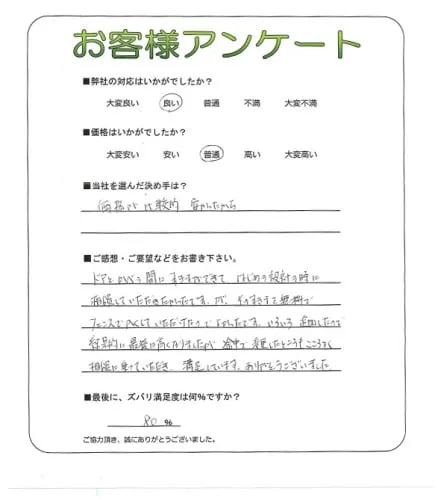 お客様アンケート
■弊社の対応はいかがでしたか?
大変良い 良い 普通 不満 大変不満
■価格はいかがでしたか?
大変安い 安い 普通 高い 大変高い
■当社を選んだ決め手は?
価格が比較的安かったから
■ご感想・ご要望などをお書き下さい。
ドアと の間にすきまができて はじめの設計の時に
相談していただきたかったです。が、そのすきまを無料で
フェンスで していただけたのでよかったです。いろいろ追加したので
結果的に最後に高くなりましたが 途中で変更したところもこころよく
相談に乗っていただき、満足しています。ありがとうございました
■最後に、ズバリ満足度は何%ですか?
80 %
ご協力頂き、誠にありがとうございました。